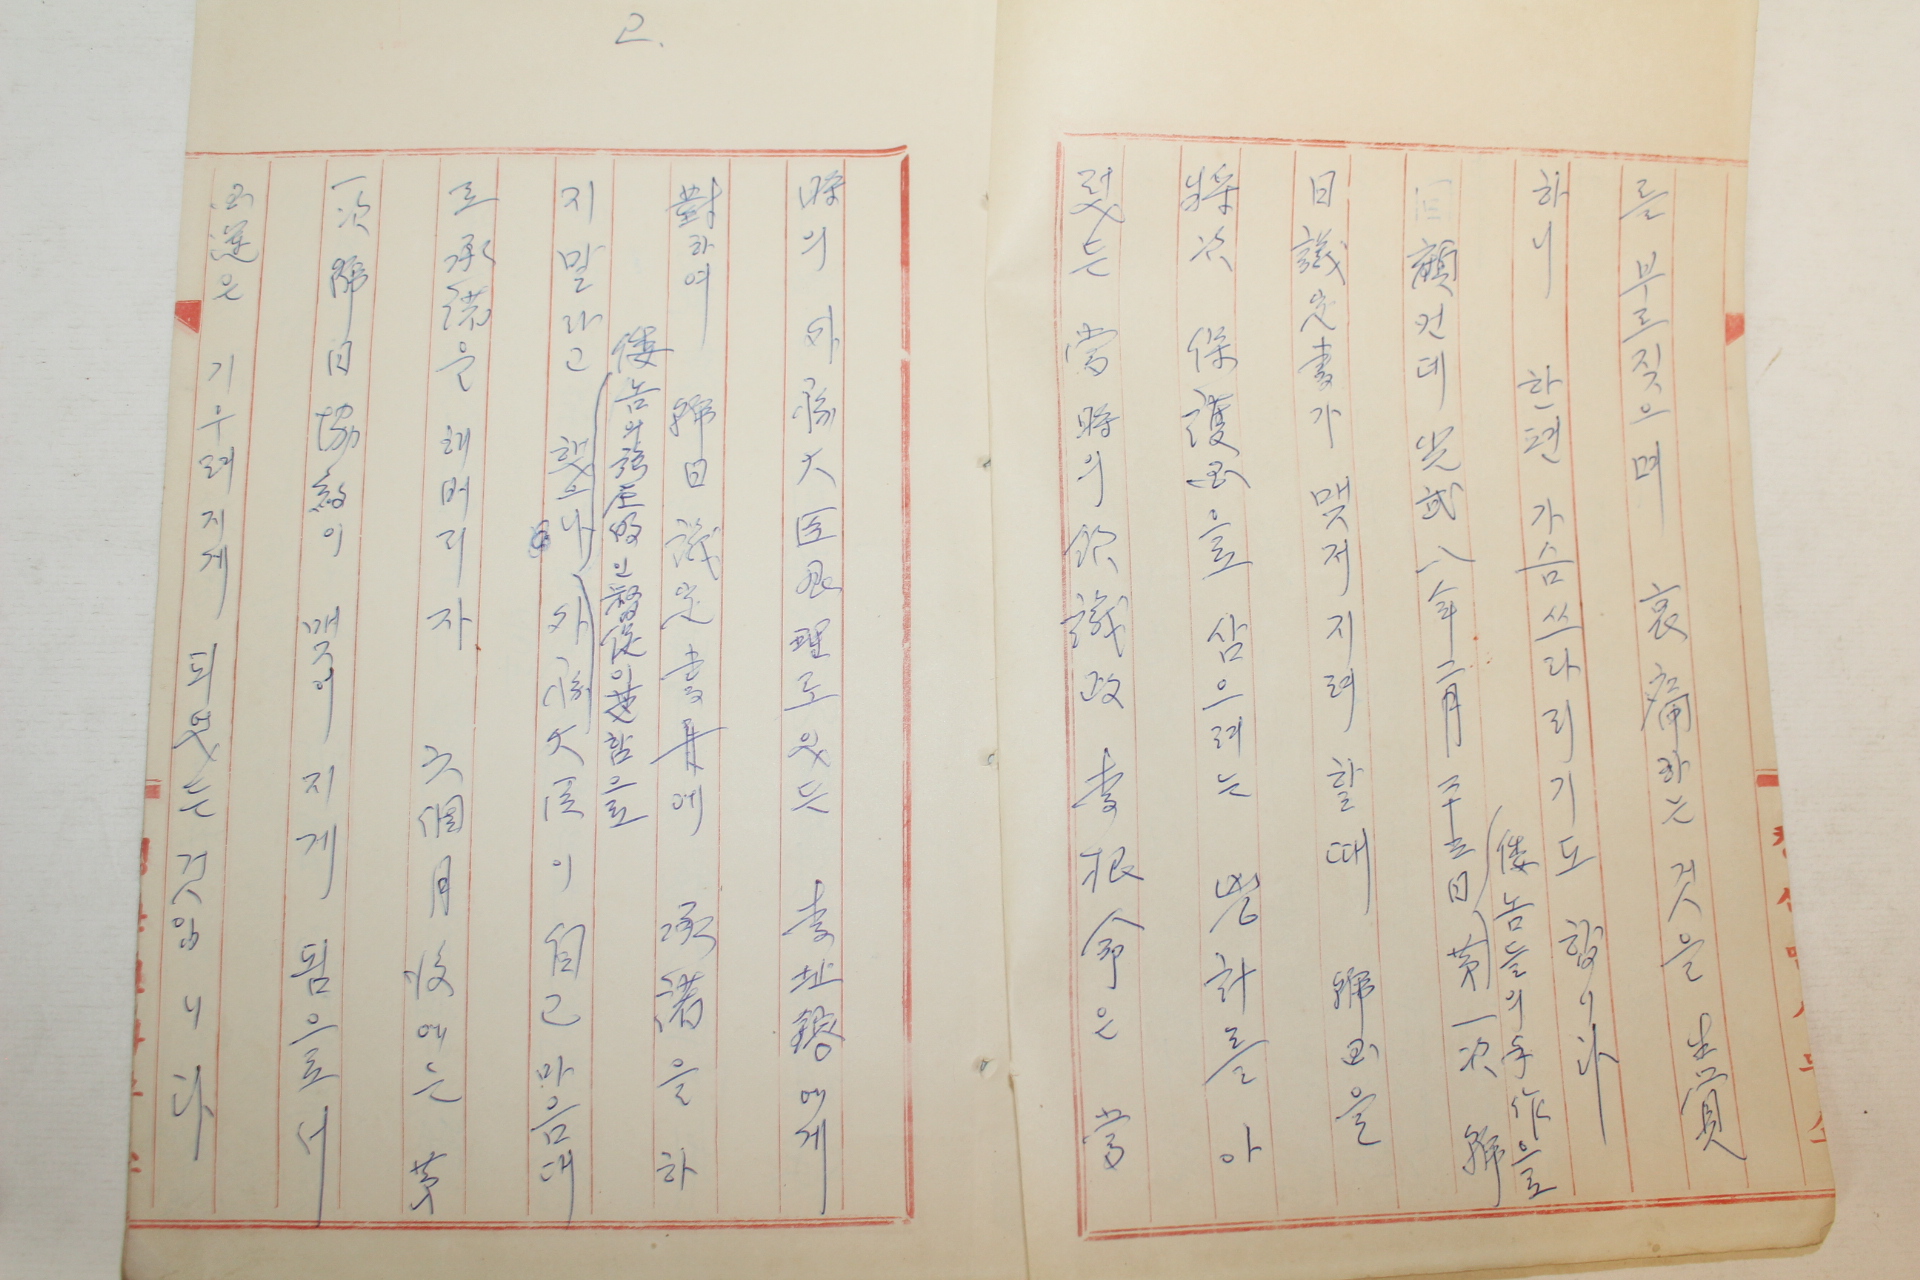 2.
를 부르짖으며 哀痛하는 것을 生覺
하니 한편 가슴 쓰라리기도 합니다
回顧컨데 光武八年二月二十三日 倭놈들의 手作으로 第一次 韓
日議定書가 맺저지려 할때 韓国을
將次 保護国을 삼으려는 凶計를 아
렀든 當時의 議政 李根命은 當
時의 外務大臣 署理로 있든 李址鎔에게
對하여 韓日議定書에 承諾을 하
지말라고 했으나 倭놈의 으로 外務大臣이 自己 마음대
로 承諾을 해버리자 六個月後에는 第
一次 韓日協約이 맺어지게 됨으로서
国運은 기우러지게 되였든 것임니다